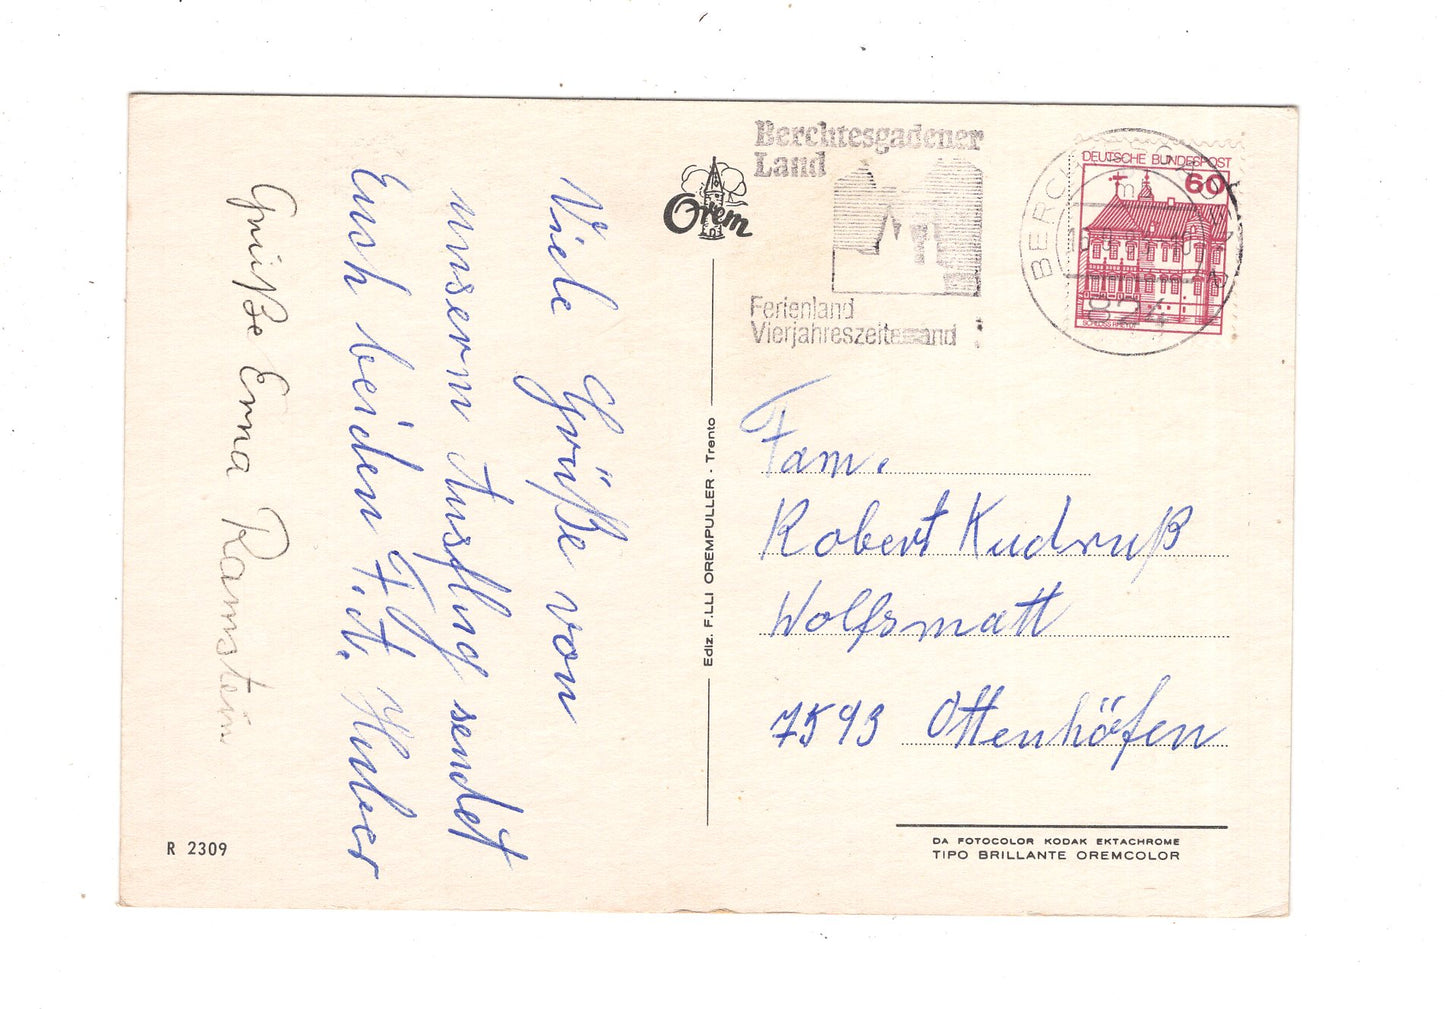 Viele Grüße von
unserm Ausflug sendet
Euch beiden F. u. A. Huber
Grüße Erna Ramstein
R 2309
Orem
Ediz. F.LLI OREMPULLER - Trento
Berchtesgadener
Land
Ferienland
DEUTSCHE BUNDESPOST
60
Fam.
Robert Kudruß
Wolfsmatt
7593 Ottenhöfen
DA FOTOCOLOR KODAK EKTACHROME
TIPO BRILLANTE OREMCOLOR